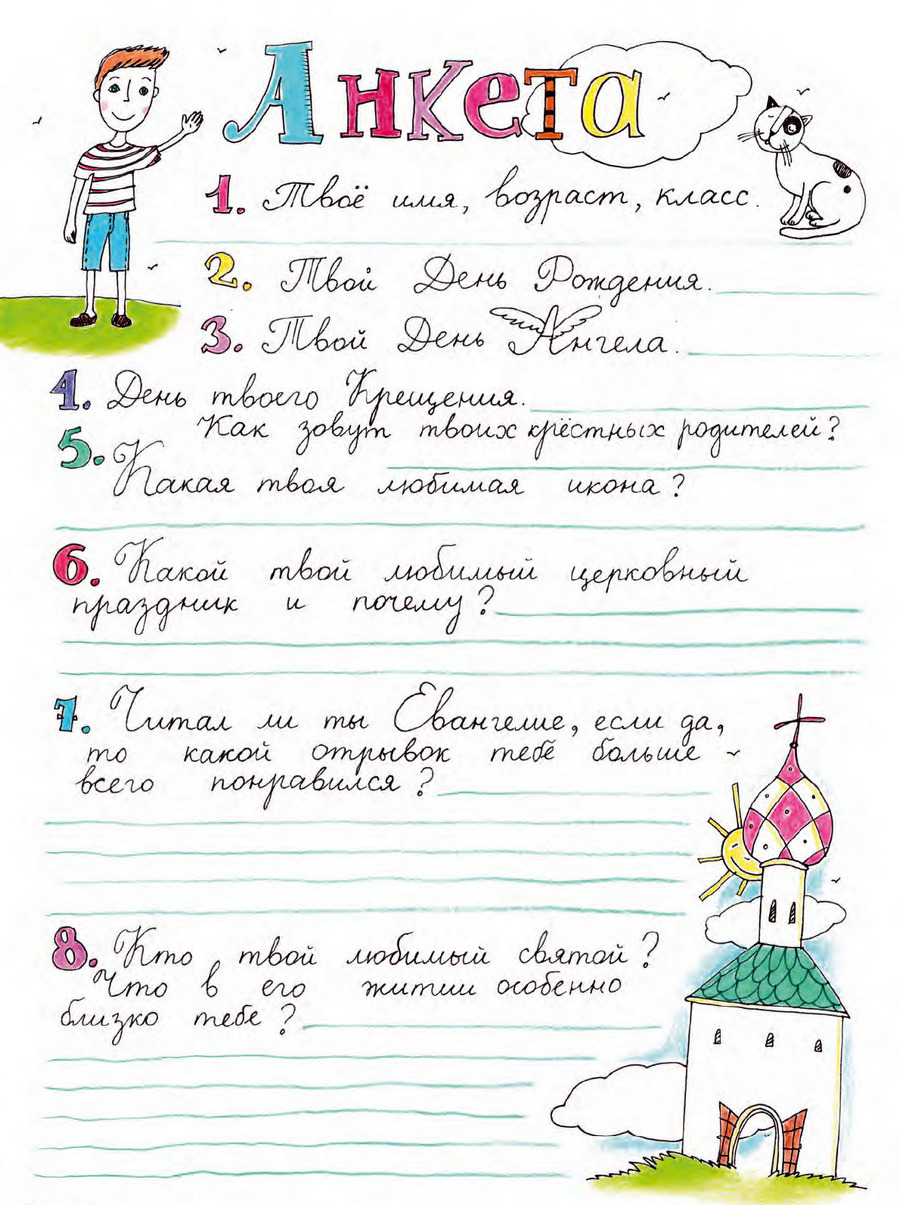 Анкета
1. Твоё имя, возраст, класс.
2. Твой День Рождения.
3. Твой День Ангела.
4. День твоего Крещения.
Как зовут твоих крёстных родителей?
5. Какая твоя любимая икона?
6. Какой твой любимый церковный
праздник и почему?
7. Читал ли ты Евангелие, если да,
то какой отрывок тебе больше
всего понравился?
8. Кто твой любимый святой?
Что в его житии особенно
близко тебе?